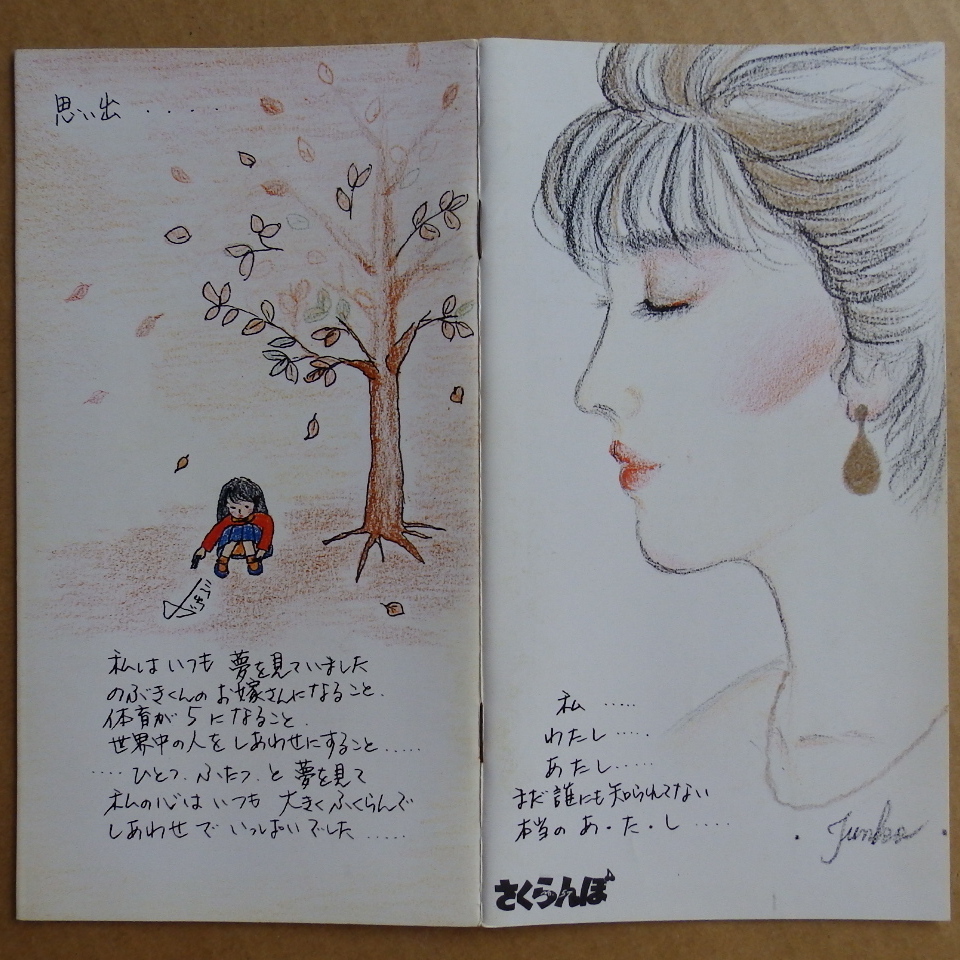 思い出 ．．．．．
のぶき
私は いつも 夢を見ていました
のぶきくんの お嫁さんになること．
体育が 5 になること．
世界中の人を しあわせにすること ……
…… ひとつ．ふたつ．と 夢を見て
私の心は いつも 大きく ふくらんで
しあわせで いっぱいでした ……
私 ……
わたし ……
あたし ……
まだ 誰にも 知られてない
本当の あ・た・し ……
Junko
さくらんぼ